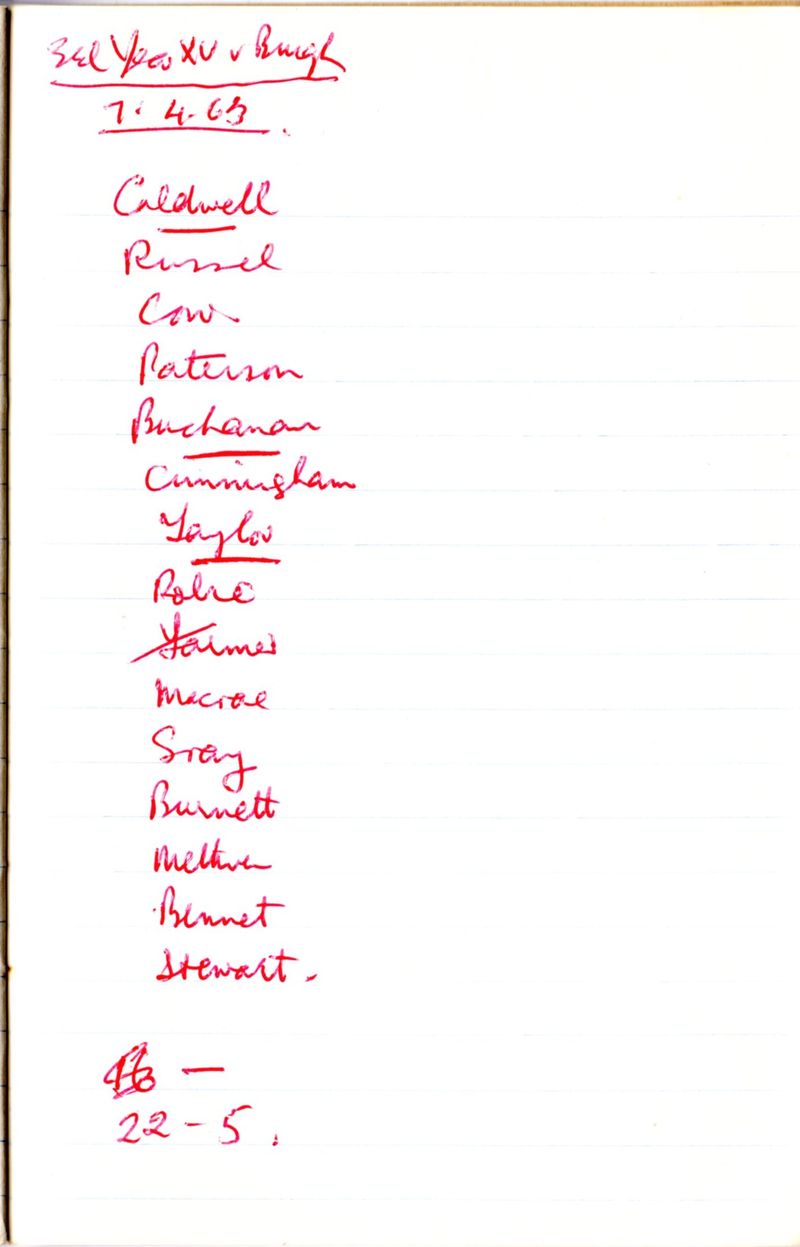 3rd Year XV v Burgh
7.4.65
Caldwell
Russel
Cow
Paterson
Buchanan
Cunningham
Taylor
Robre
Farmer
Macrae
Gray
Burnett
Methven
Bennet
Stewart.
—
22 - 5.